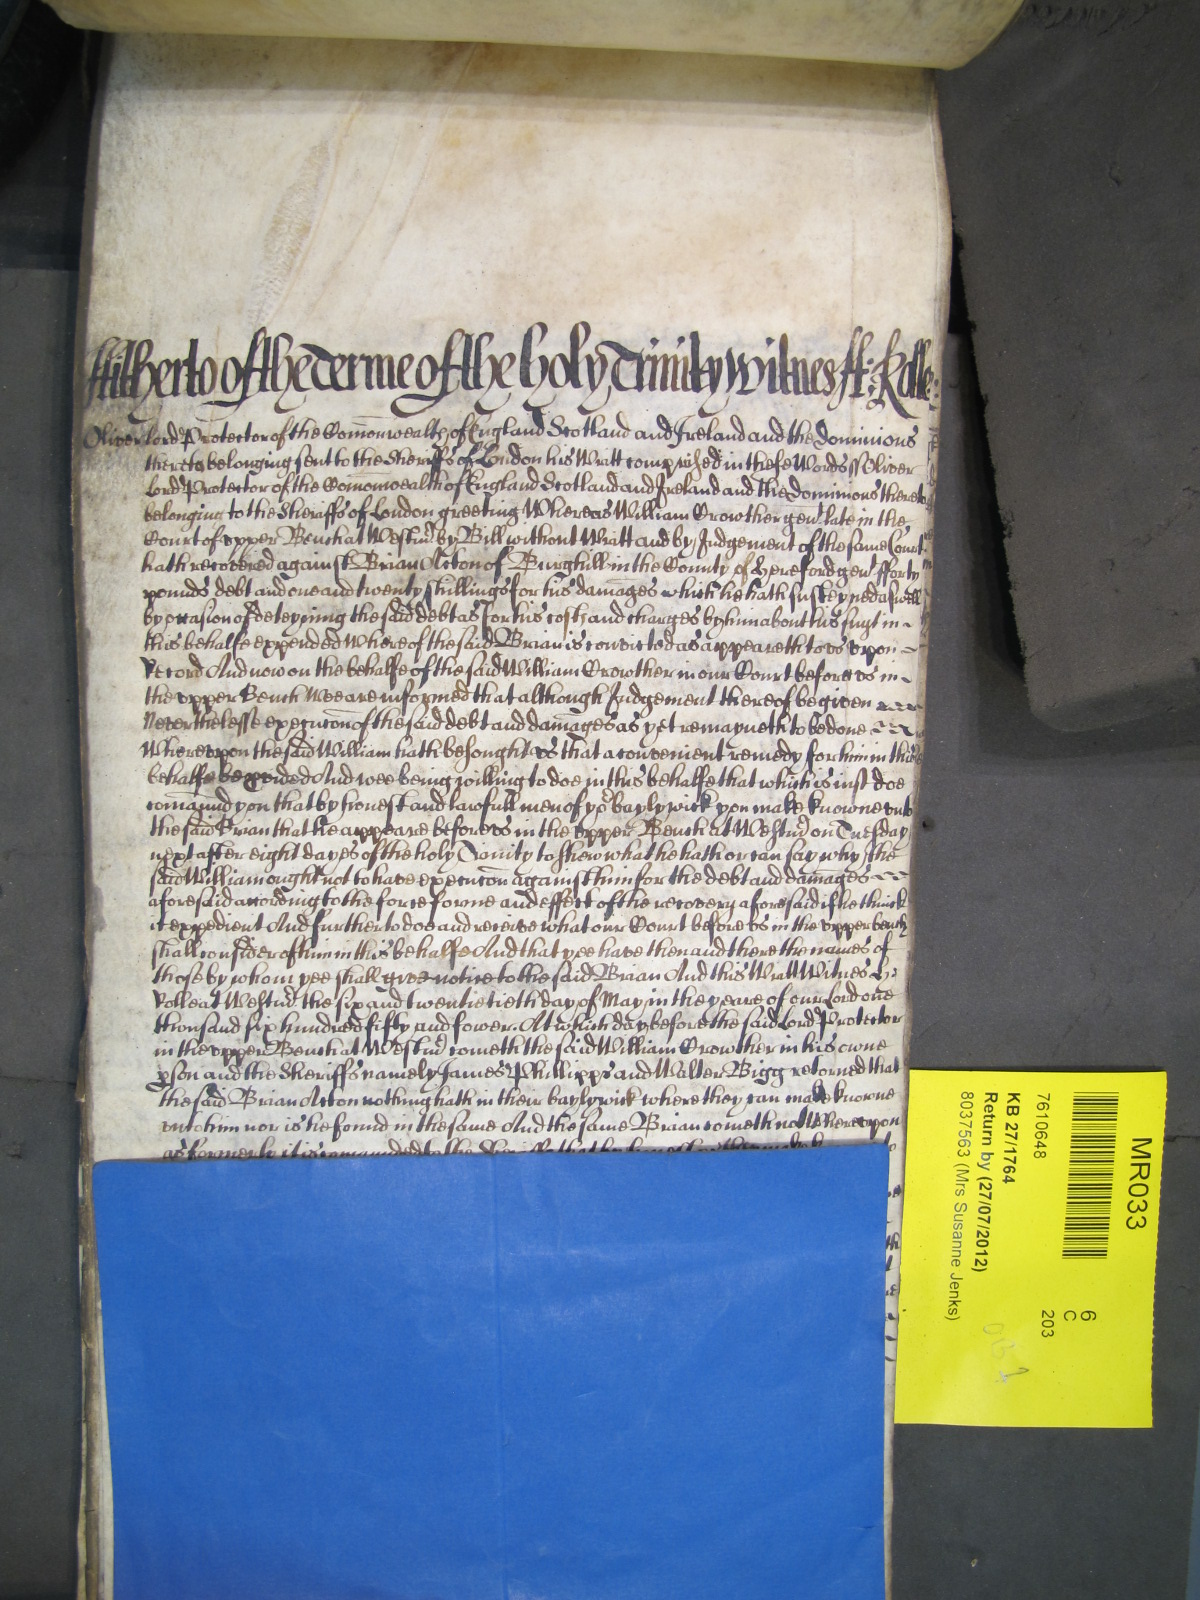 Hitherto of the Terme of the holy Trinity Witnes H: Rolle:
Oliver lord Protector of the Comonwealth of England Scotland and Ireland and the Dominions
thereto belonging sent to the Sheriffs of London his Writt comprised in these Words ss Oliver
Lord Protector of the Comonwealth of England Scotland and Ireland and the Dominions thereto
belonging to the Sheriffs of London greeting Whereas William Crowther gent late in the
Court of upper Bench at Westmr by Bill without Writt and by Judgement of the same Court
hath recovered against Brian Acton of Burghill in the County of Hereford gent fforty
pounds debt and one and twenty shillings for his damages which he hath susteyned aswell
by occasion of deteyning the said debt as for his costs and charges by him about his suyt in
this behalfe expended Whereof the said Brian is convicted as appeareth to us upon
Record And now on the behalfe of the said William Crowther in our Court before us in
the upper Bench Wee are informed that although Judgement thereof be given
Neverthelesse execucon of the said debt and damages as yet remayneth to be done
Whereupon the said William hath besought us that a convenient remedy for him in this
behalfe be pvided And wee being willing to doe in this behalfe that which is just doe
comaund you that by honest and lawfull men of yor baylywick you make knowne unto
the said Brian that he appeare before us in the upper Bench at Westmr on Tuesday
next after eight dayes of the holy Trinity to shew what he hath or can say why the
said William ought not to have execucon against him for the debt and damages
aforesaid according to the force forme and effect of the recovery aforesaid if he think
it expedient And further to doe and receive what our Court before us in the upper bench
shall consider of him in this behalfe And that yee have then and there the names of
those by whom yee shall give notice to the said Brian And this Writt Witnes H:
Rolle at Westmr the six and twentietieth day of May in the yeare of our Lord one
thousand six hundred fifty and fower. At which day before the said Lord Protector
in the upper Bench at Westmr cometh the said William Crowther in his owne
pson and the Sheriffs namely James Phillipps and Walter Bigg retorned that
the said Brian Acton nothing hath in their baylywick where they can make knowne
unto him nor is he found in the same And the same Brian cometh not Whereupon
as formerly it is comaunded to the Sheriffs that by honest
MR033
6
C
203
7610648
KB 27/1764
Return by (27/07/2012)
8037563 (Mrs Susanne Jenks)